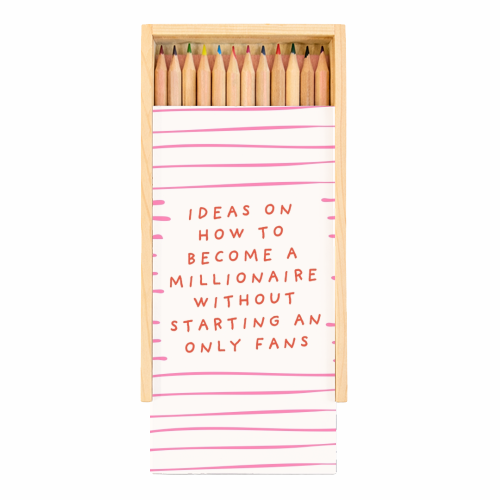 IDEAS ON
HOW TO
BECOME A
MILLIONAIRE
WITHOUT
STARTING AN
ONLY FANS